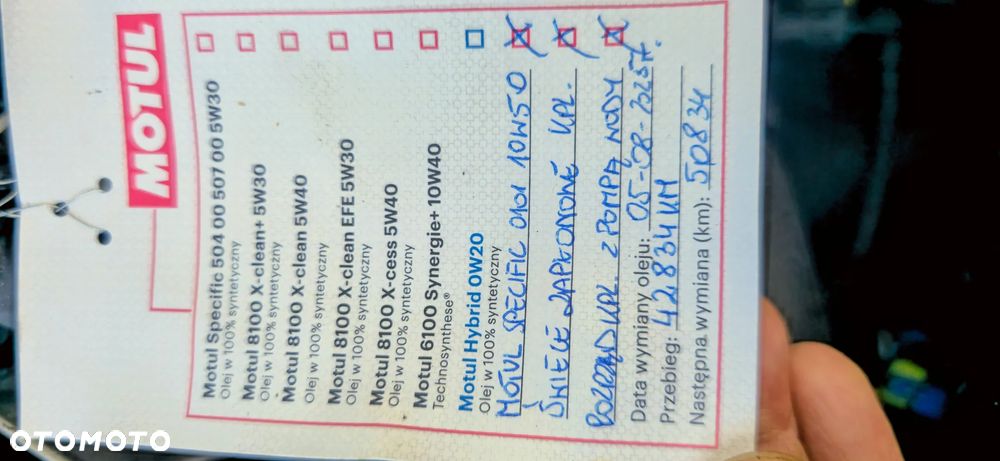 MOTUL
Motul Specific 504 00 507 00 5W30
Olej w 100% syntetyczny
Motul 8100 X-clean+ 5W30
Olej w 100% syntetyczny
Motul 8100 X-clean 5W40
Olej w 100% syntetyczny
Motul 8100 X-clean EFE 5W30
Olej w 100% syntetyczny
Motul 8100 X-cess 5W40
Olej w 100% syntetyczny
Motul 6100 Synergie+ 10W40
Technosynthese®
Motul Hybrid 0W20
Olej w 100% syntetyczny
MOTUL SPECIFIC 0101 10W50
ŚWIECE ZAPŁONOWE KPL.
ROZRZĄD KPL. Z POMPĄ WODY
Data wymiany oleju: 05-08-
Przebieg: 42.834 KM
Następna wymiana (km): 50834
OTOMOTO